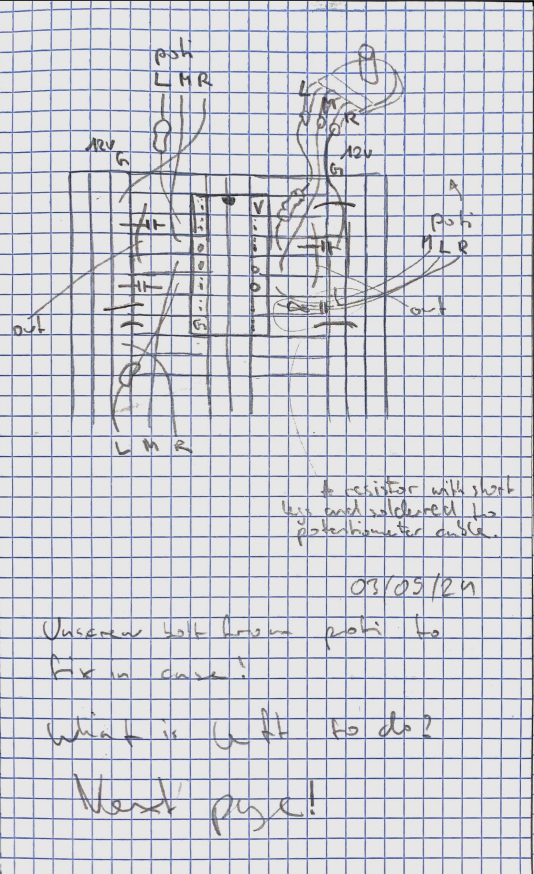 poti
L M R
L
M
R
12V
G
12V
G
V
poti
M L R
out
out
G
L
L M R
A resistor with short
legs and soldered to
potentiometer cable.
03/05/24
Unscrew bolt from poti to
fix in case!
What is left to do?
Next page!